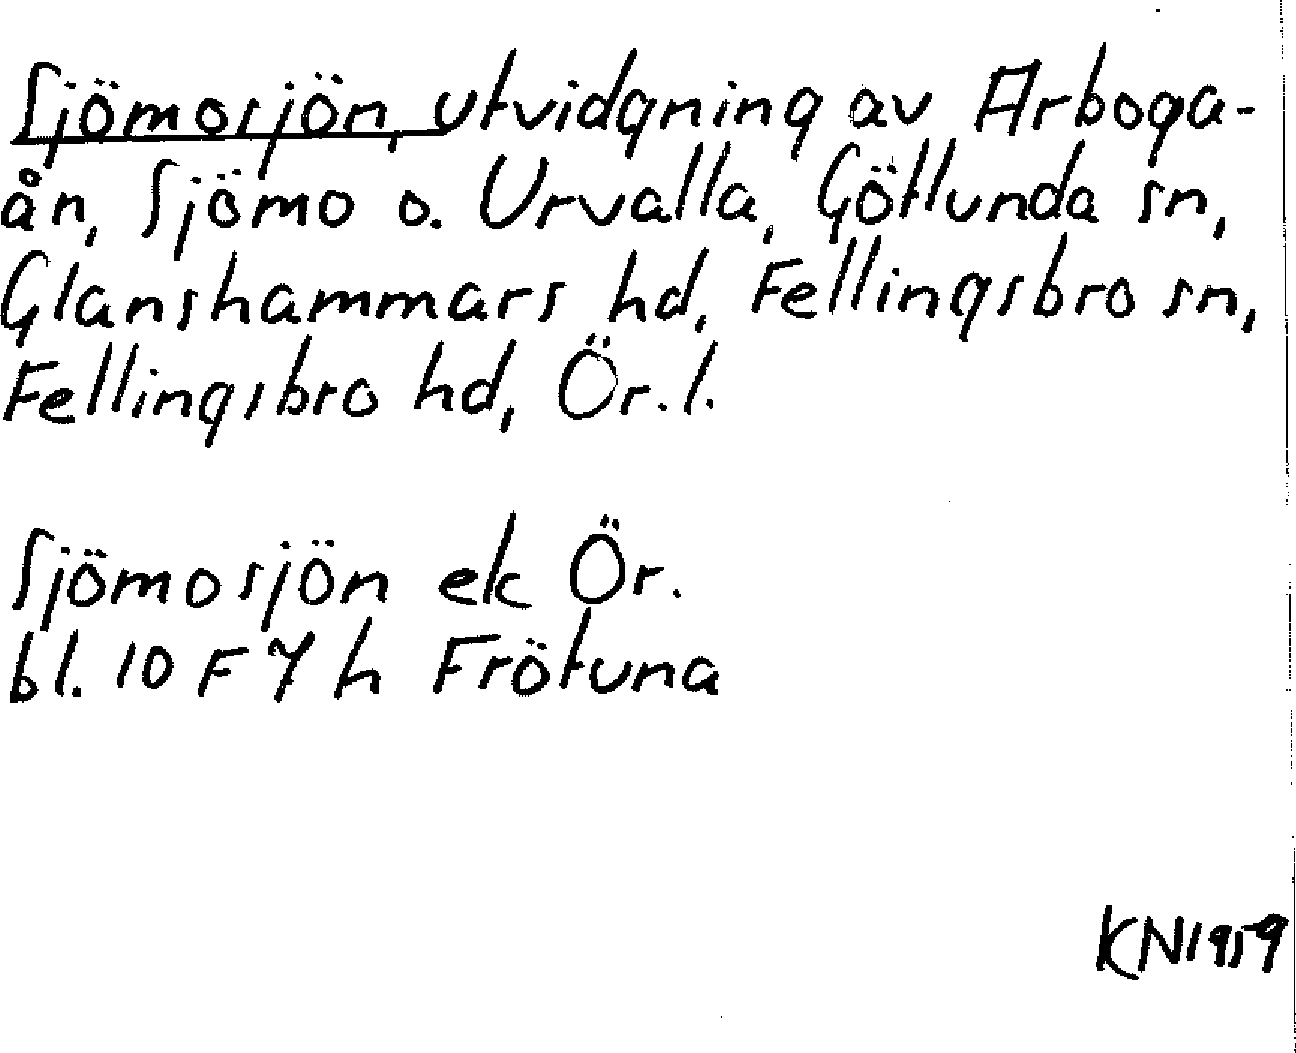 Sjömosjön, utvidgning av Arboga-
ån, Sjömo o. Urvalla, Götlunda sn,
Glanshammars hd, Fellingsbro sn,
Fellingsbro hd, Ör. l.
Sjömosjön ek Ör.
bl. 10 F 7 h Frötuna
KN 1959